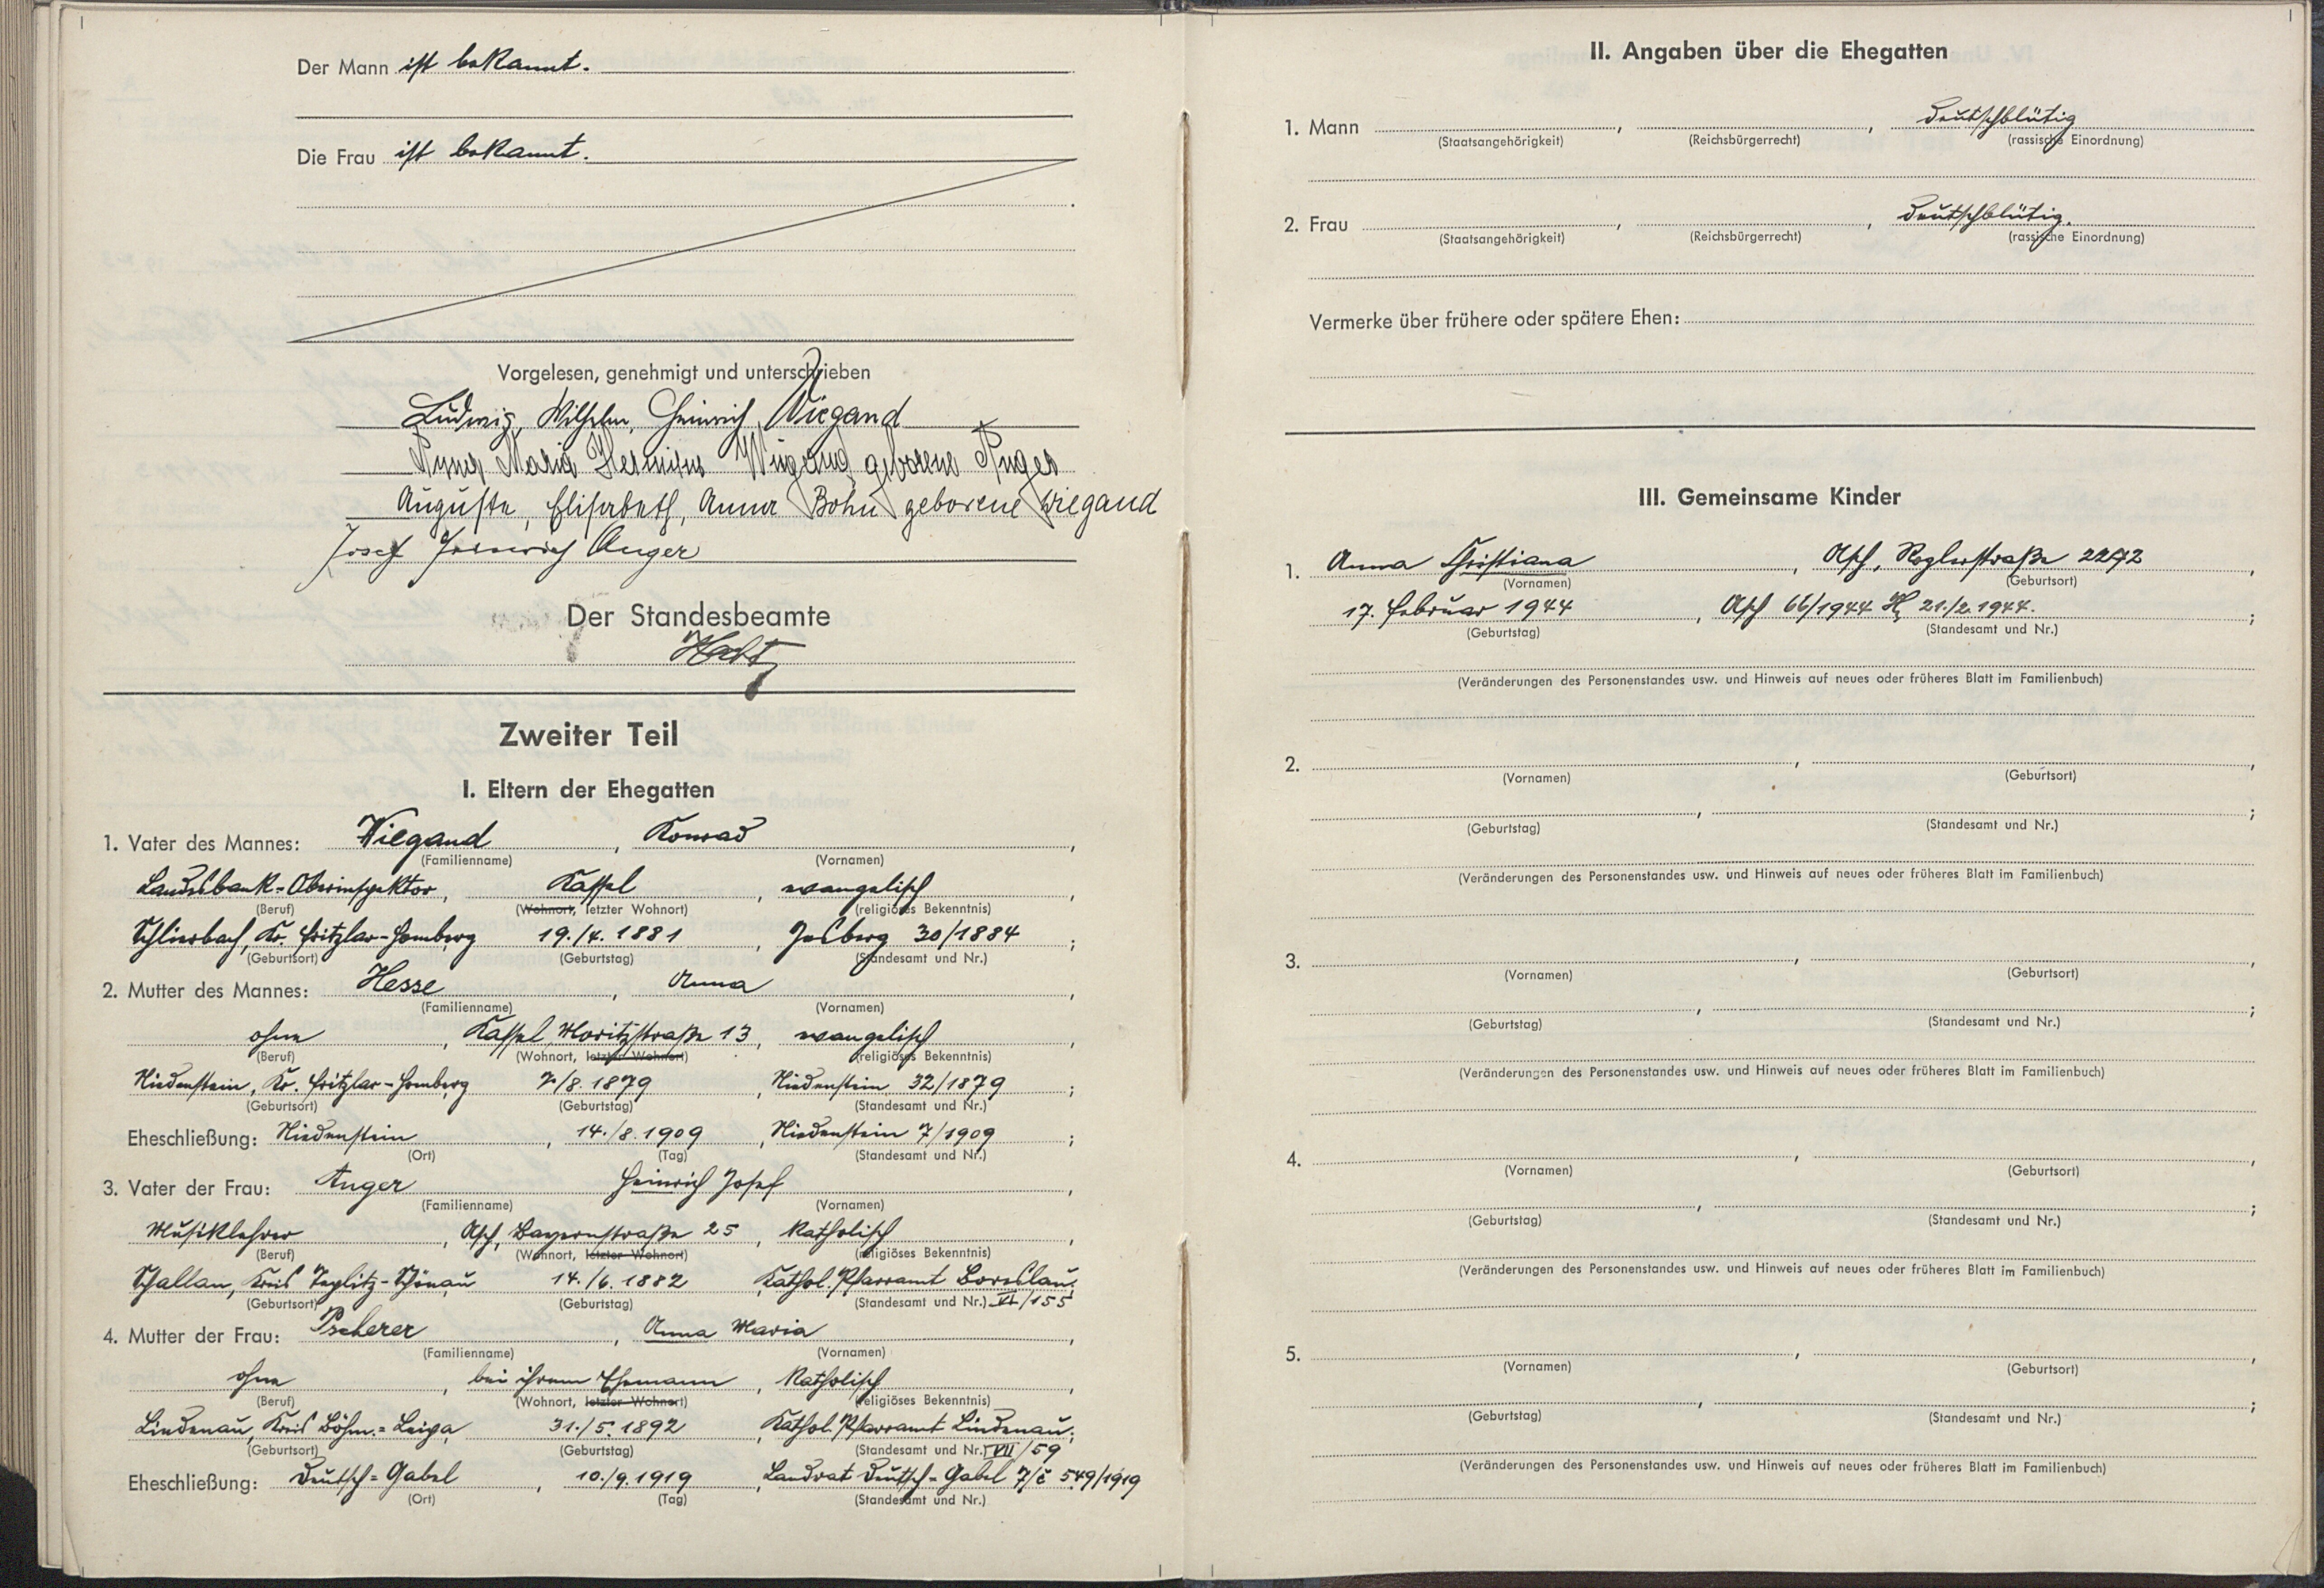 Der Mann ist bekannt.
Die Frau ist bekannt.
Vorgelesen, genehmigt und unterschrieben
Ludwig, Wilhelm, Heinrich Wiegand
Anna Maria Hermine Wiegand geborene Anger
Auguste, Elisabeth, Anna Bohn geborene Wiegand
Josef Heinrich Anger
Der Standesbeamte
Zweiter Teil
I. Eltern der Ehegatten
1. Vater des Mannes: Wiegand, Konrad,
(Familienname) (Vornamen)
Landesbank-Oberinspektor, Kassel, evangelisch,
(Beruf) (Wohnort, letzter Wohnort) (religiöses Bekenntnis)
Schlierbach, Kr. Fritzlar-Homberg 19./4. 1881, Jesberg 30/1884;
(Geburtsort) (Geburtstag) (Standesamt und Nr.)
2. Mutter des Mannes: Hesse, Anna,
(Familienname) (Vornamen)
ohne, Kassel, Moritzstraße 13, evangelisch,
(Beruf) (Wohnort, letzter Wohnort) (religiöses Bekenntnis)
Niedenstein, Kr. Fritzlar-Homberg 7./8. 1879, Niedenstein 32/1879;
(Geburtsort) (Geburtstag) (Standesamt und Nr.)
Eheschließung: Niedenstein, 14./8. 1909, Niedenstein 7/1909;
(Ort) (Tag) (Standesamt und Nr.)
3. Vater der Frau: Anger Heinrich Josef,
(Familienname) (Vornamen)
Musiklehrer, Asch, Bayernstraße 25, katholisch,
(Beruf) (Wohnort, letzter Wohnort) (religiöses Bekenntnis)
Schallan, Kreis Teplitz-Schönau 14./6. 1882, Kathol. Pfarramt Boreslau,
(Geburtsort) (Geburtstag) (Standesamt und Nr.) VI/155
4. Mutter der Frau: Pscherer, Anna Maria,
(Familienname) (Vornamen)
ohne, bei ihrem Ehemann, katholisch,
(Beruf) (Wohnort, letzter Wohnort) (religiöses Bekenntnis)
Lindenau, Kreis Böhm.-Leipa, 31./5. 1892, Kathol. Pfarramt Lindenau;
(Geburtsort) (Geburtstag) (Standesamt und Nr.) VII/59
Eheschließung: Deutsch-Gabel, 10./9. 1919, Landrat Deutsch-Gabel 7/č 549/1919
(Ort) (Tag) (Standesamt und Nr.)
II. Angaben über die Ehegatten
1. Mann, , deutschblütig
(Staatsangehörigkeit) (Reichsbürgerrecht) (rassische Einordnung)
2. Frau, , deutschblütig.
(Staatsangehörigkeit) (Reichsbürgerrecht) (rassische Einordnung)
Vermerke über frühere oder spätere Ehen:
III. Gemeinsame Kinder
1. Anna Christiana, Asch, Roglerstraße 2272,
(Vornamen) (Geburtsort)
17. Februar 1944, Asch 66/1944 H, 21./2. 1944.;
(Geburtstag) (Standesamt und Nr.)
(Veränderungen des Personenstandes usw. und Hinweis auf neues oder früheres Blatt im Familienbuch)
2. , ,
(Vornamen) (Geburtsort)
, ;
(Geburtstag) (Standesamt und Nr.)
(Veränderungen des Personenstandes usw. und Hinweis auf neues oder früheres Blatt im Familienbuch)
3. , ,
(Vornamen) (Geburtsort)
, ;
(Geburtstag) (Standesamt und Nr.)
(Veränderungen des Personenstandes usw. und Hinweis auf neues oder früheres Blatt im Familienbuch)
4. , ,
(Vornamen) (Geburtsort)
, ;
(Geburtstag) (Standesamt und Nr.)
(Veränderungen des Personenstandes usw. und Hinweis auf neues oder früheres Blatt im Familienbuch)
5. , ,
(Vornamen) (Geburtsort)
, ;
(Geburtstag) (Standesamt und Nr.)
(Veränderungen des Personenstandes usw. und Hinweis auf neues oder früheres Blatt im Familienbuch)